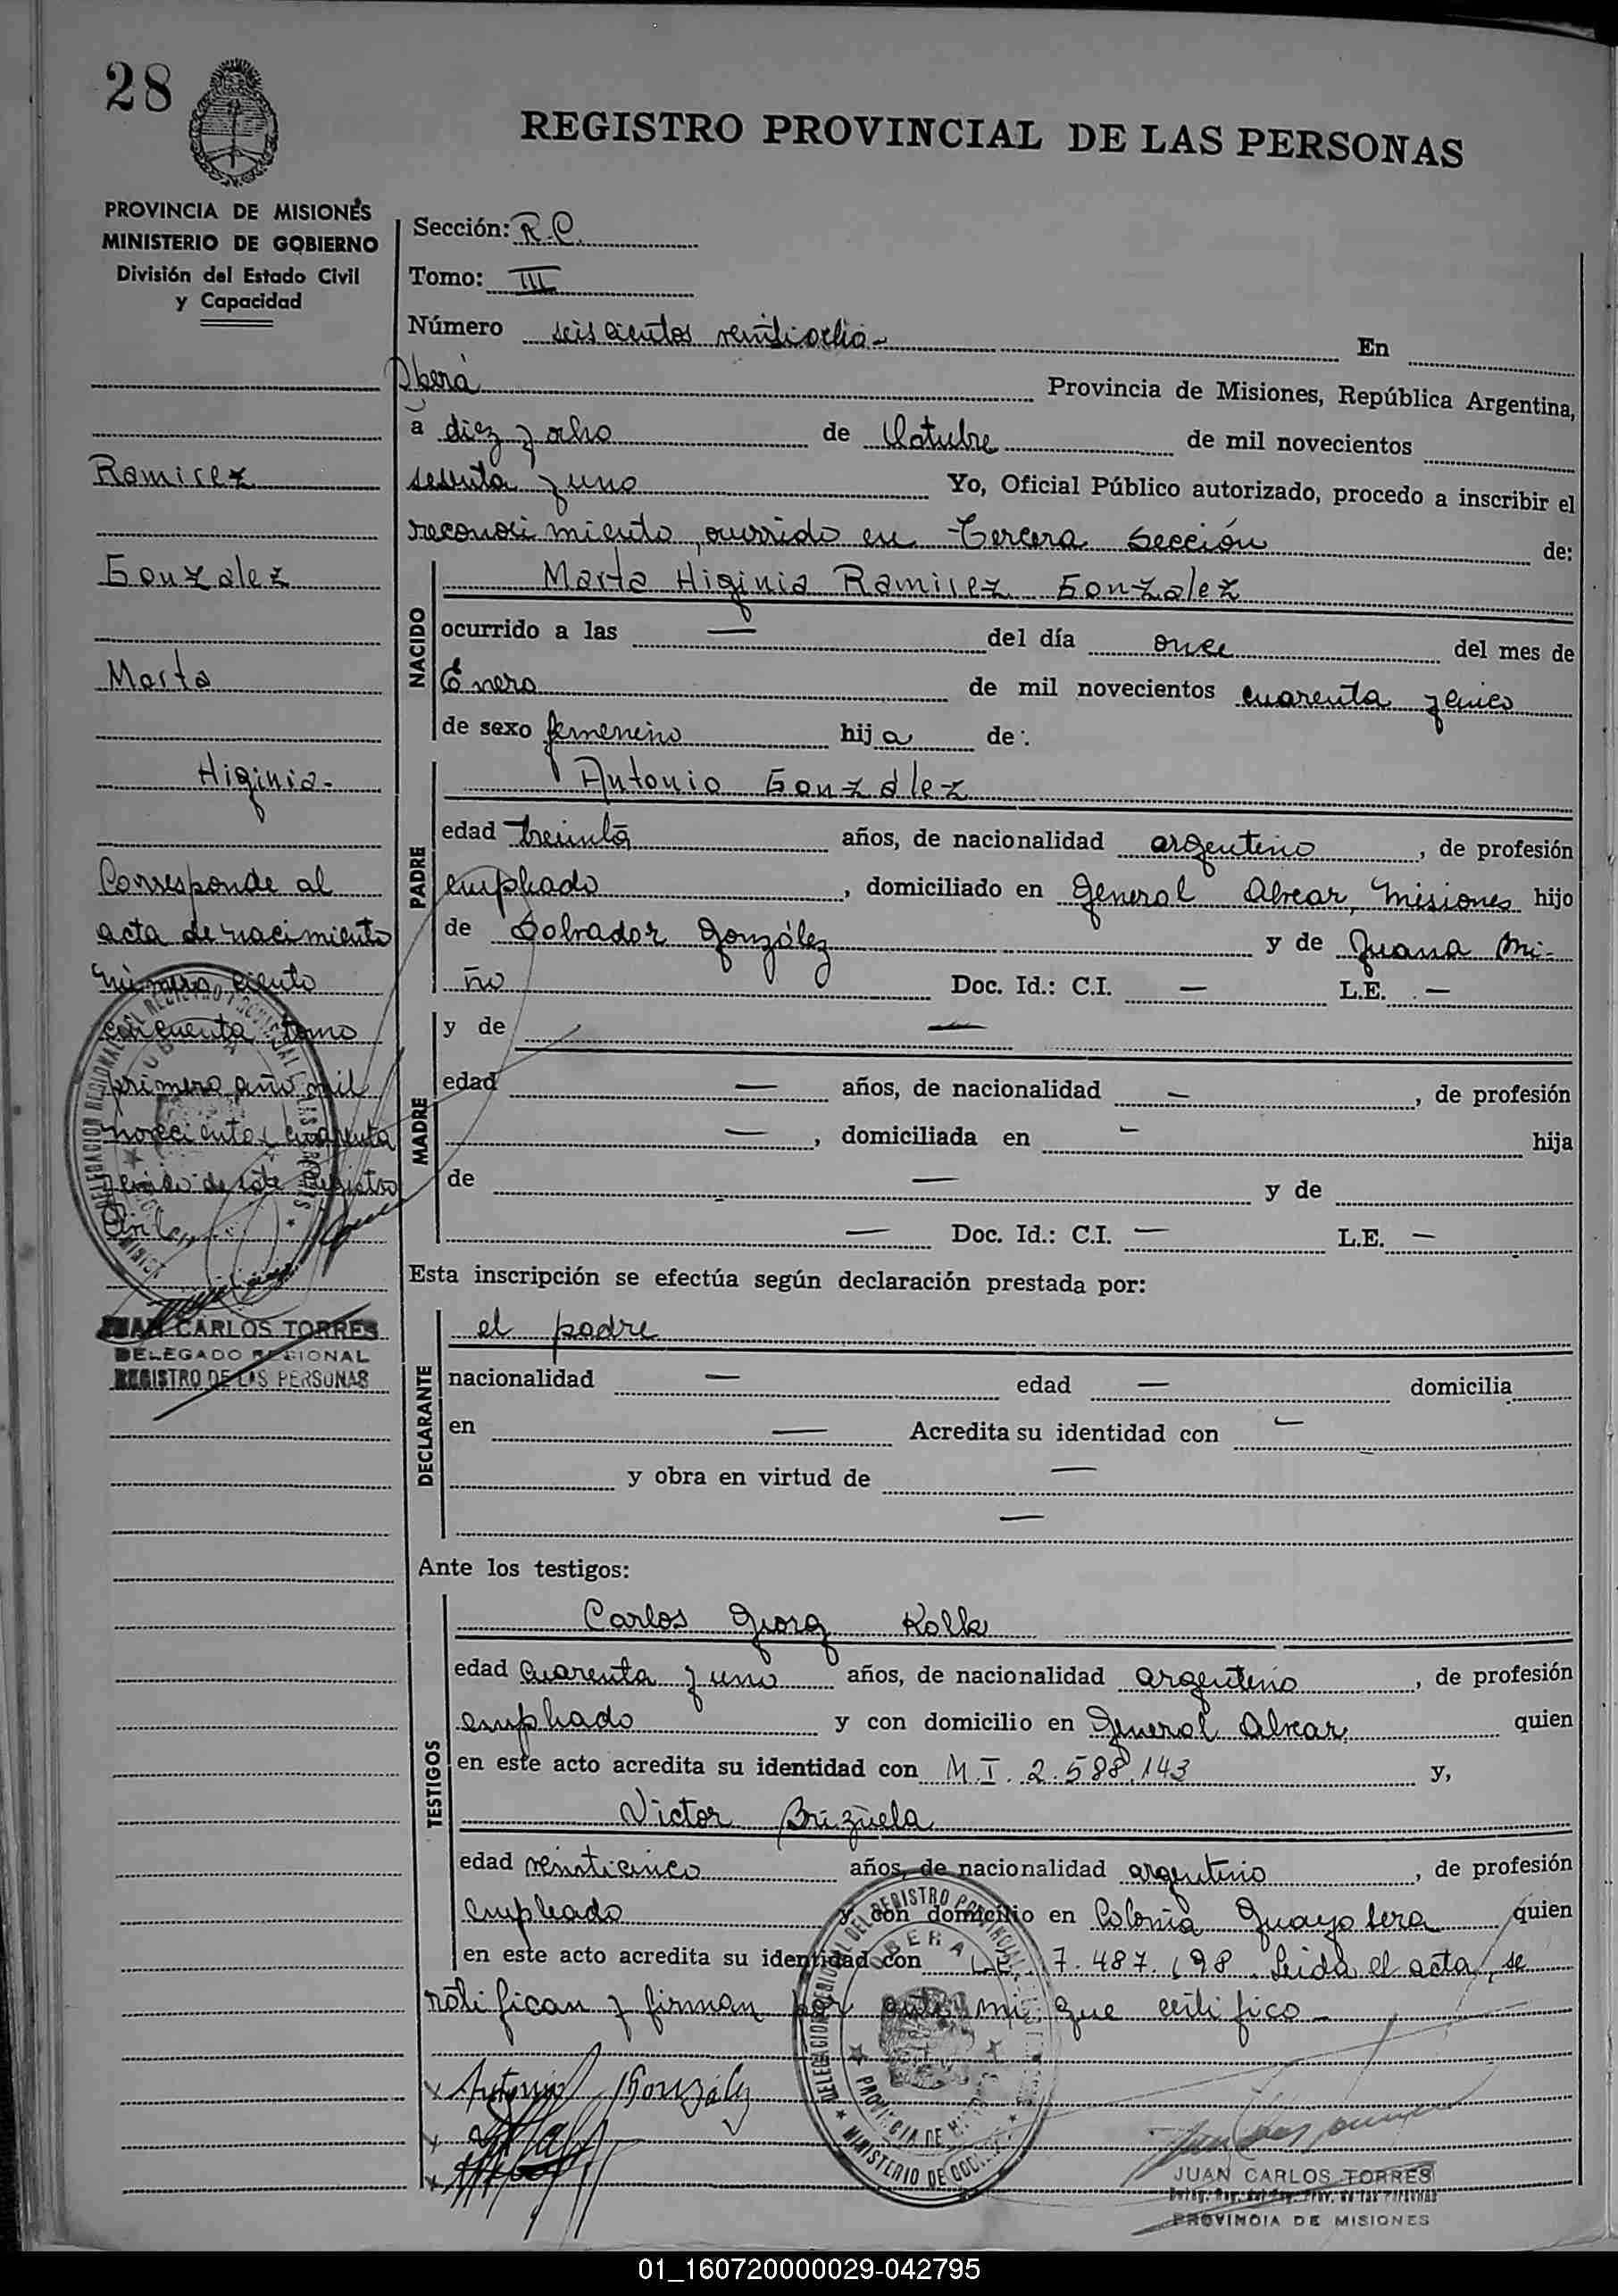 28
REGISTRO PROVINCIAL DE LAS PERSONAS
PROVINCIA DE MISIONES
MINISTERIO DE GOBIERNO
División del Estado Civil
y Capacidad
Ramirez
Gonzalez
Marta
Higinia.-
Corresponde al
acta de nacimiento
número ciento
cincuenta tomo
primero año mil
novecientos cuarenta
y cinco de este Registro
Civil
JUAN CARLOS TORRES
DELEGADO REGIONAL
REGISTRO DE LAS PERSONAS
Sección: R.C.
Tomo: III
Número seiscientos veintiocho- En
Oberá Provincia de Misiones, República Argentina,
a diez y ocho de Octubre de mil novecientos
sesenta y uno Yo, Oficial Público autorizado, procedo a inscribir el
reconocimiento, ocurrido en Tercera Sección de:
NACIDO
Marta Higinia Ramirez Gonzalez
ocurrido a las — del día once del mes de
Enero de mil novecientos cuarenta y cinco
de sexo femenino hija de:
PADRE
Antonio González
edad treinta años, de nacionalidad argentino, de profesión
empleado, domiciliado en General Alvear, Misiones hijo
de Salvador González y de Juana Mi-
ño Doc. Id.: C.I. — L.E. —
MADRE
y de —
edad — años, de nacionalidad —, de profesión
—, domiciliada en — hija
de — y de
— Doc. Id.: C.I. — L.E. —
Esta inscripción se efectúa según declaración prestada por:
DECLARANTE
el padre
nacionalidad — edad — domicilia
en — Acredita su identidad con —
y obra en virtud de —
—
Ante los testigos:
TESTIGOS
Carlos Georg Kolle
edad cuarenta y uno años, de nacionalidad argentino, de profesión
empleado y con domicilio en General Alvear, quien
en este acto acredita su identidad con M.I. 2.588.143 y,
Victor Brizuela
edad veinticinco años, de nacionalidad argentino, de profesión
empleado y con domicilio en Colonia quien
en este acto acredita su identidad con L.E. 7.487.198. Leida el acta, se
ratifican y firman por ante mi, que certifico-
Antonio González
DELEGACION REGIONAL DEL REGISTRO PROVINCIAL
OBERA
PROVINCIA DE
MINISTERIO DE
JUAN CARLOS TORRES
PROVINCIA DE MISIONES
01_160720000029-042795